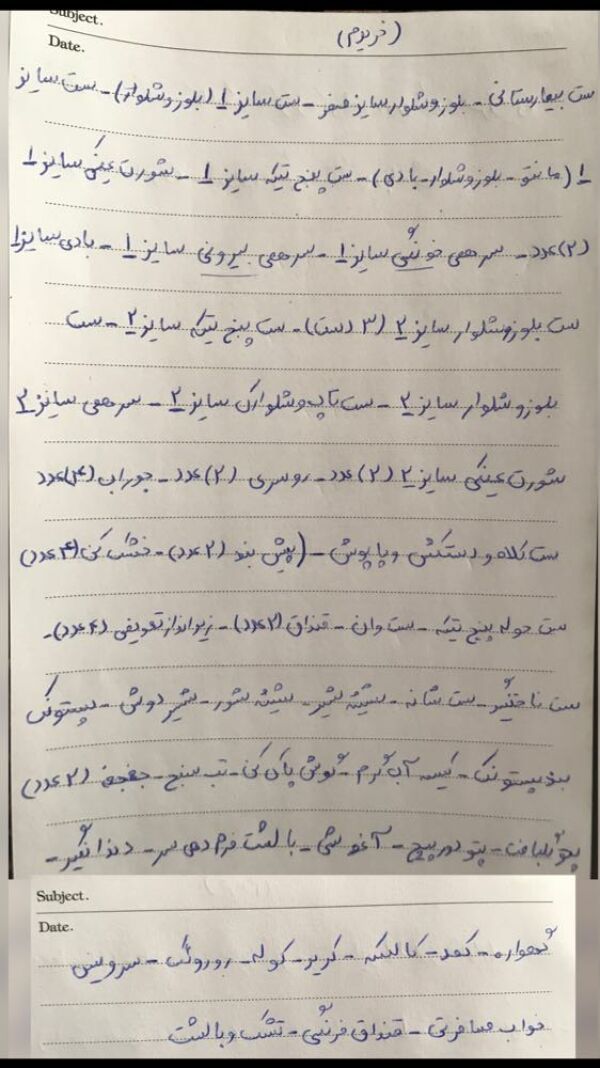 Subject.
(خریدم)
Date.
ست بیمارستانی - بلوز و شلوار سایز صفر - ست سایز 1 (بلوز و شلوار) - ست سایز
1 (مانتو - بلوز و شلوار - بادی) - ست پنج تیکه سایز 1 - شورت عینکی سایز 1
(۲) عدد - سرهمی خونگی سایز 1 - سرهمی بیرونی سایز 1 - بادی سایز 1
ست بلوز و شلوار سایز 2 (۳ دست) - ست پنج تیکه سایز 2 - ست
بلوز و شلوار سایز 2 - ست تاپ و شلوارک سایز 2 - سرهمی سایز 2
شورت عینکی سایز 2 (۲) عدد - روسری (۲) عدد - جوراب (۴) عدد
ست کلاه و دستکش و پاپوش - (پیش بند (۲ عدد) - خشک کن (۴ عدد)
ست حوله پنج تیکه - ست وان - قنداق (۲ عدد) - زیرانداز تعویض (۲ عدد) -
ست ناخنگیر - ست شانه - شیشه شیر - شیشه شور - شیر دوش - پستونک
بند پستونک - کیسه آب گرم - گوش پاک کن - تب سنج - جغجغه (۲ عدد)
پتو گلبافت - پتو دور پیچ - آغوشی - بالشت فرم دهی سر - دندانگیر -
Subject.
Date.
گهواره - کمد - کالسکه - کریر - کوله - روروئک - سرویس
خواب مسافرتی - قنداق فرنگی - تشک و بالشت